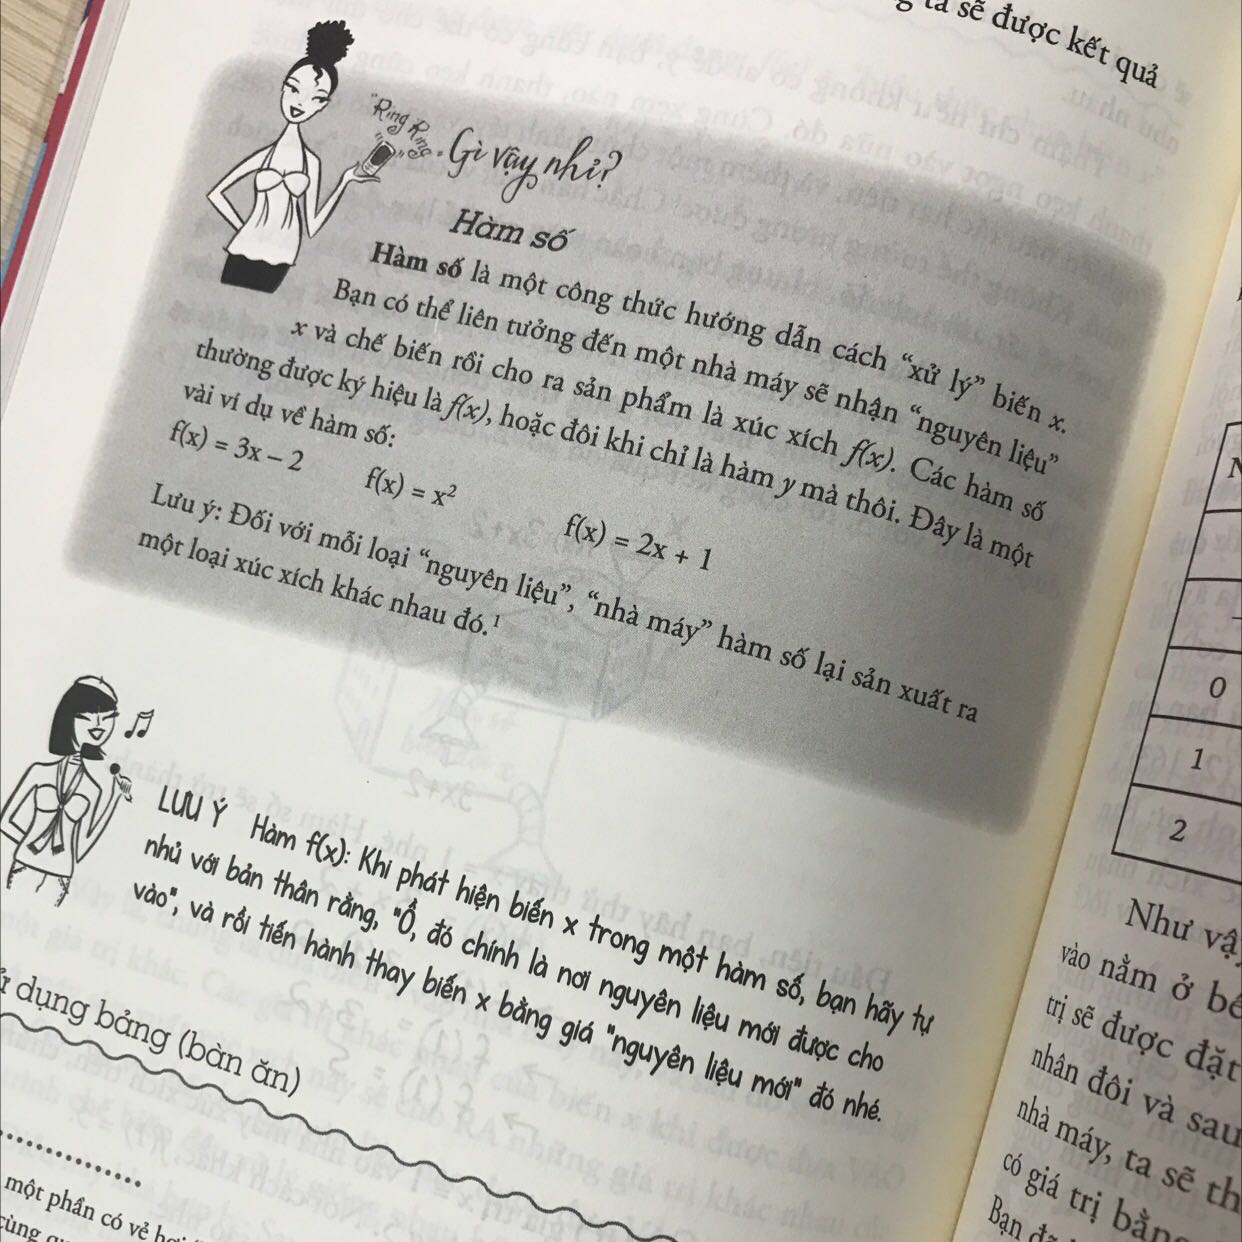 ta sẽ được kết quả
"Ring Ring"
Gì vậy nhỉ?
Hàm số
Hàm số là một công thức hướng dẫn cách “xử lý” biến x.
Bạn có thể liên tưởng đến một nhà máy sẽ nhận “nguyên liệu”
x và chế biến rồi cho ra sản phẩm là xúc xích f(x). Các hàm số
thường được ký hiệu là f(x), hoặc đôi khi chỉ là hàm y mà thôi. Đây là một
vài ví dụ về hàm số:
f(x) = 3x – 2 f(x) = x² f(x) = 2x + 1
Lưu ý: Đối với mỗi loại “nguyên liệu”, “nhà máy” hàm số lại sản xuất ra
một loại xúc xích khác nhau đó.¹
LƯU Ý Hàm f(x): Khi phát hiện biến x trong một hàm số, bạn hãy tự
nhủ với bản thân rằng, "Ồ, đó chính là nơi nguyên liệu mới được cho
vào", và rồi tiến hành thay biến x bằng giá "nguyên liệu mới" đó nhé.
dụng bảng (bàn ăn)
một phần có vẻ
cùng
0
1
2
Như vậy
vào nằm ở
trị sẽ được đặt
nhân đôi và sau
nhà máy, ta sẽ
có giá trị bằng
Bạn